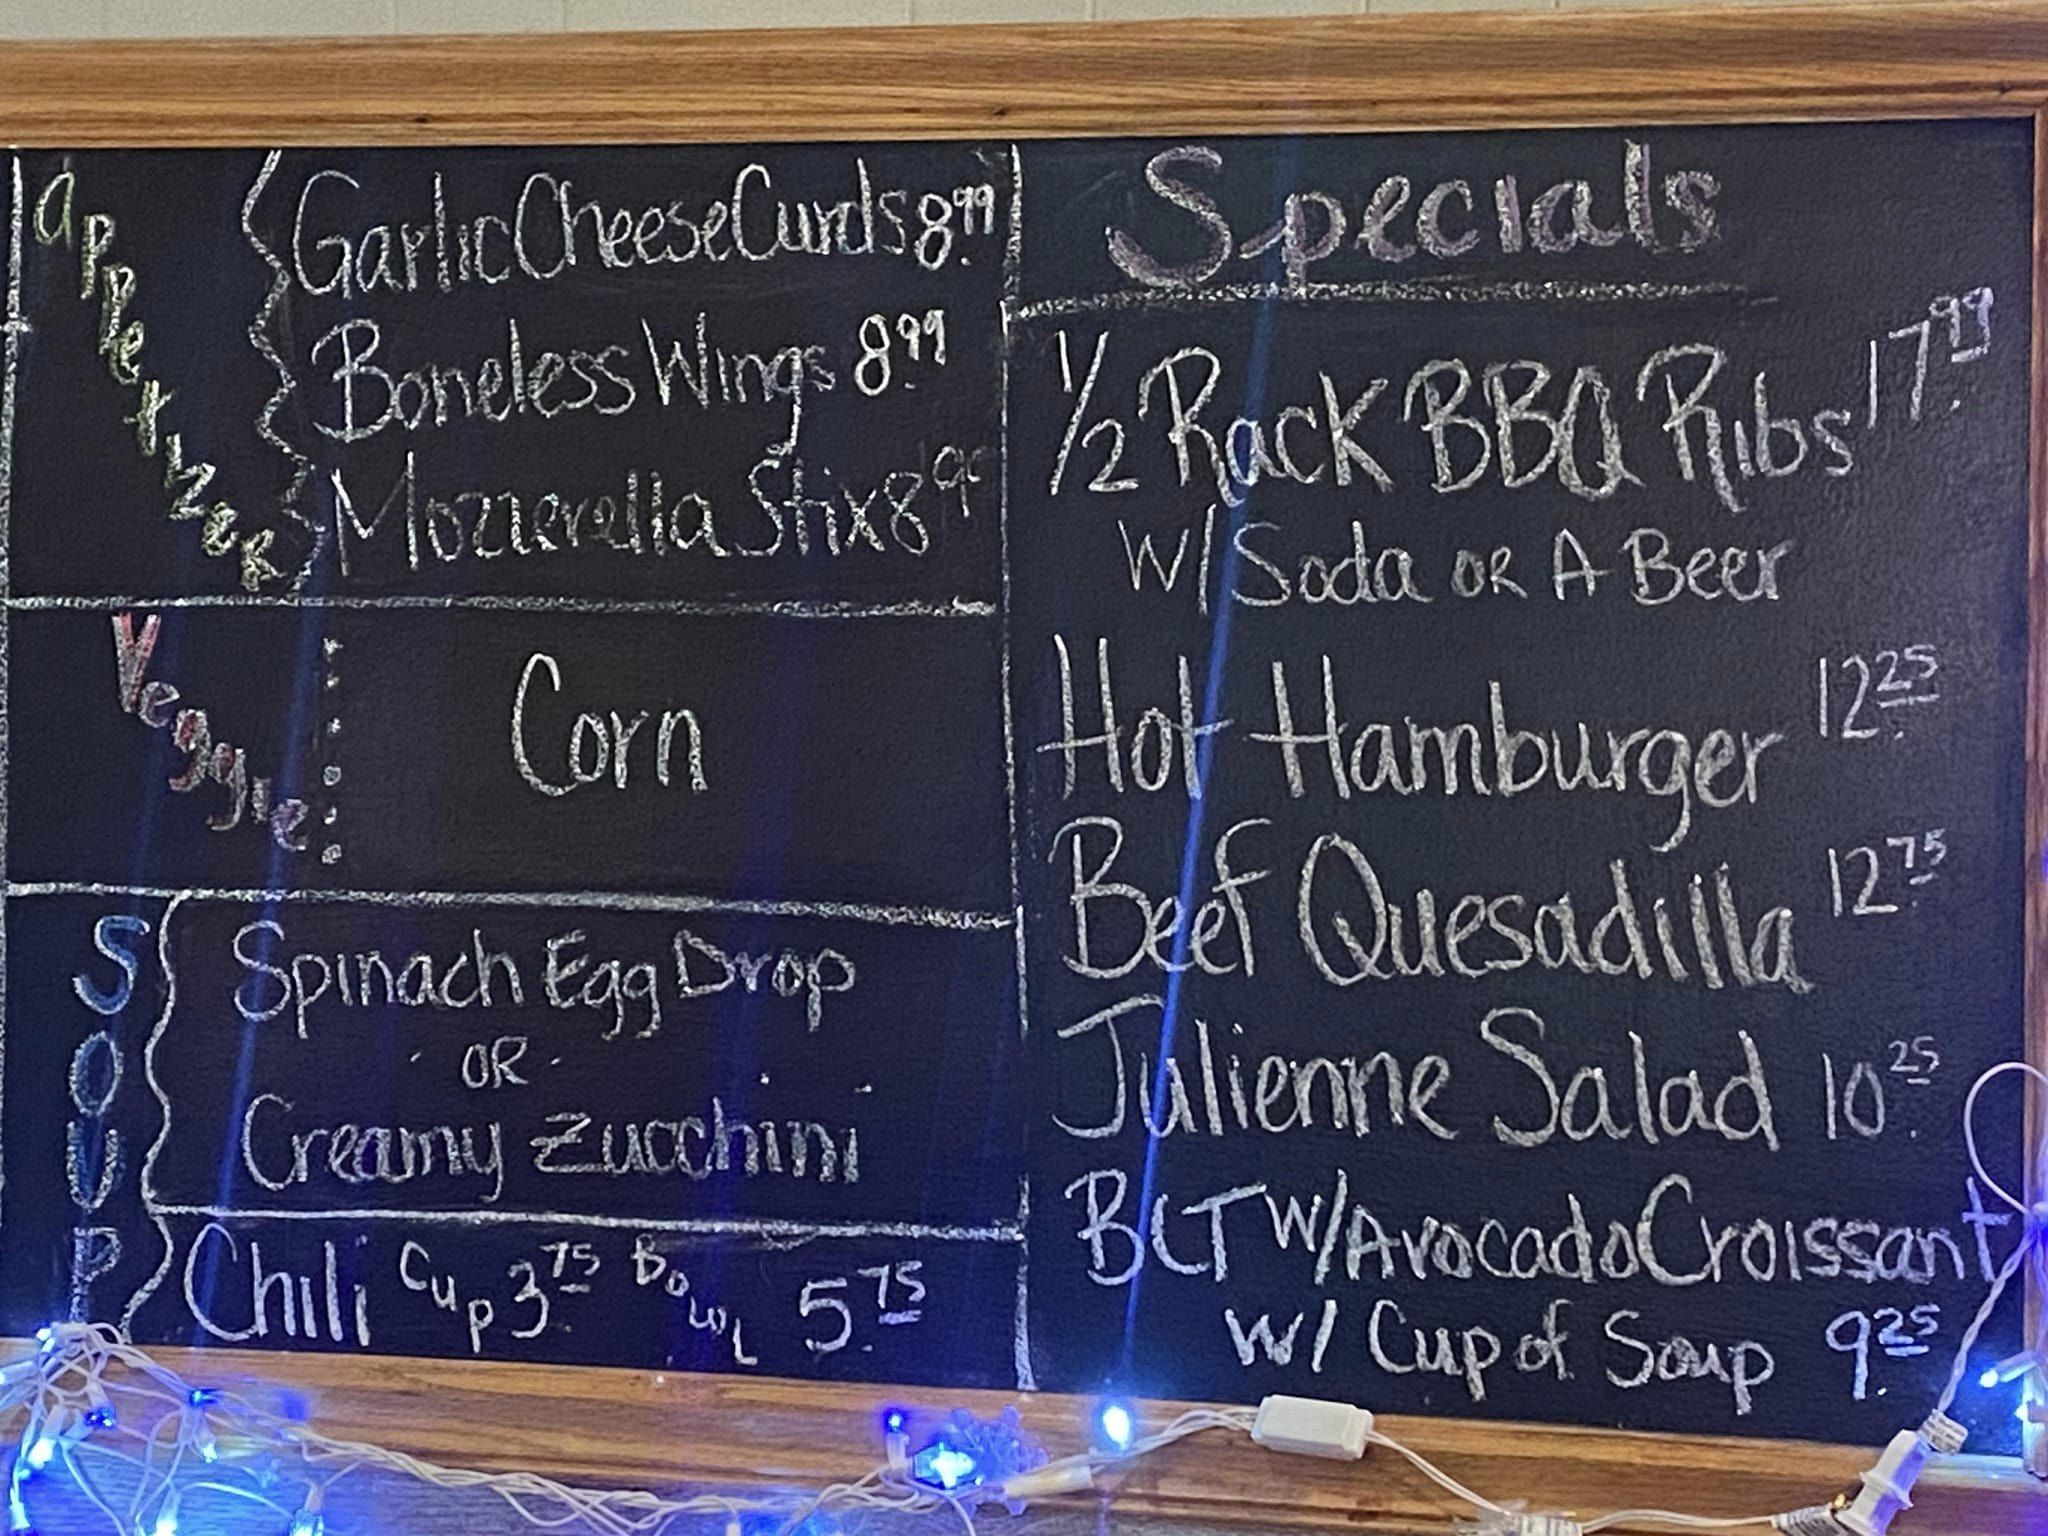 appetizer
Garlic Cheese Curds 8.99
Boneless Wings 8.99
Mozzerella Stix 8.99
Veggie
Corn
SOUP
Spinach Egg Drop
OR
Creamy Zucchini
Chili Cup 3.75 Bowl 5.75
Specials
1/2 Rack BBQ Ribs 17.99
W/ Soda OR A Beer
Hot Hamburger 12.25
Beef Quesadilla 12.75
Julienne Salad 10.25
BLT W/ Avocado Croissant
W/ Cup of Soup 9.25